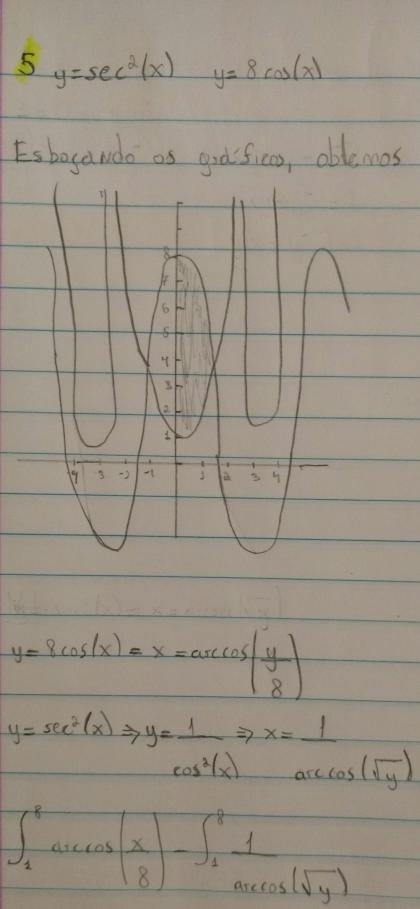 5 y=sec²(x) y=8cos(x)
Esboçando os gráficos, obtemos
8
7
6
5
4
3
2
1
-4 -3 -2 -1 1 2 3 4
y=8cos(x) = x = arccos(y/8)
y=sec²(x) ⇒ y=1/cos²(x) ⇒ x=1/arccos(√y)
∫₁⁸ arccos(x/8) - ∫₁⁸ 1/arccos(√y)